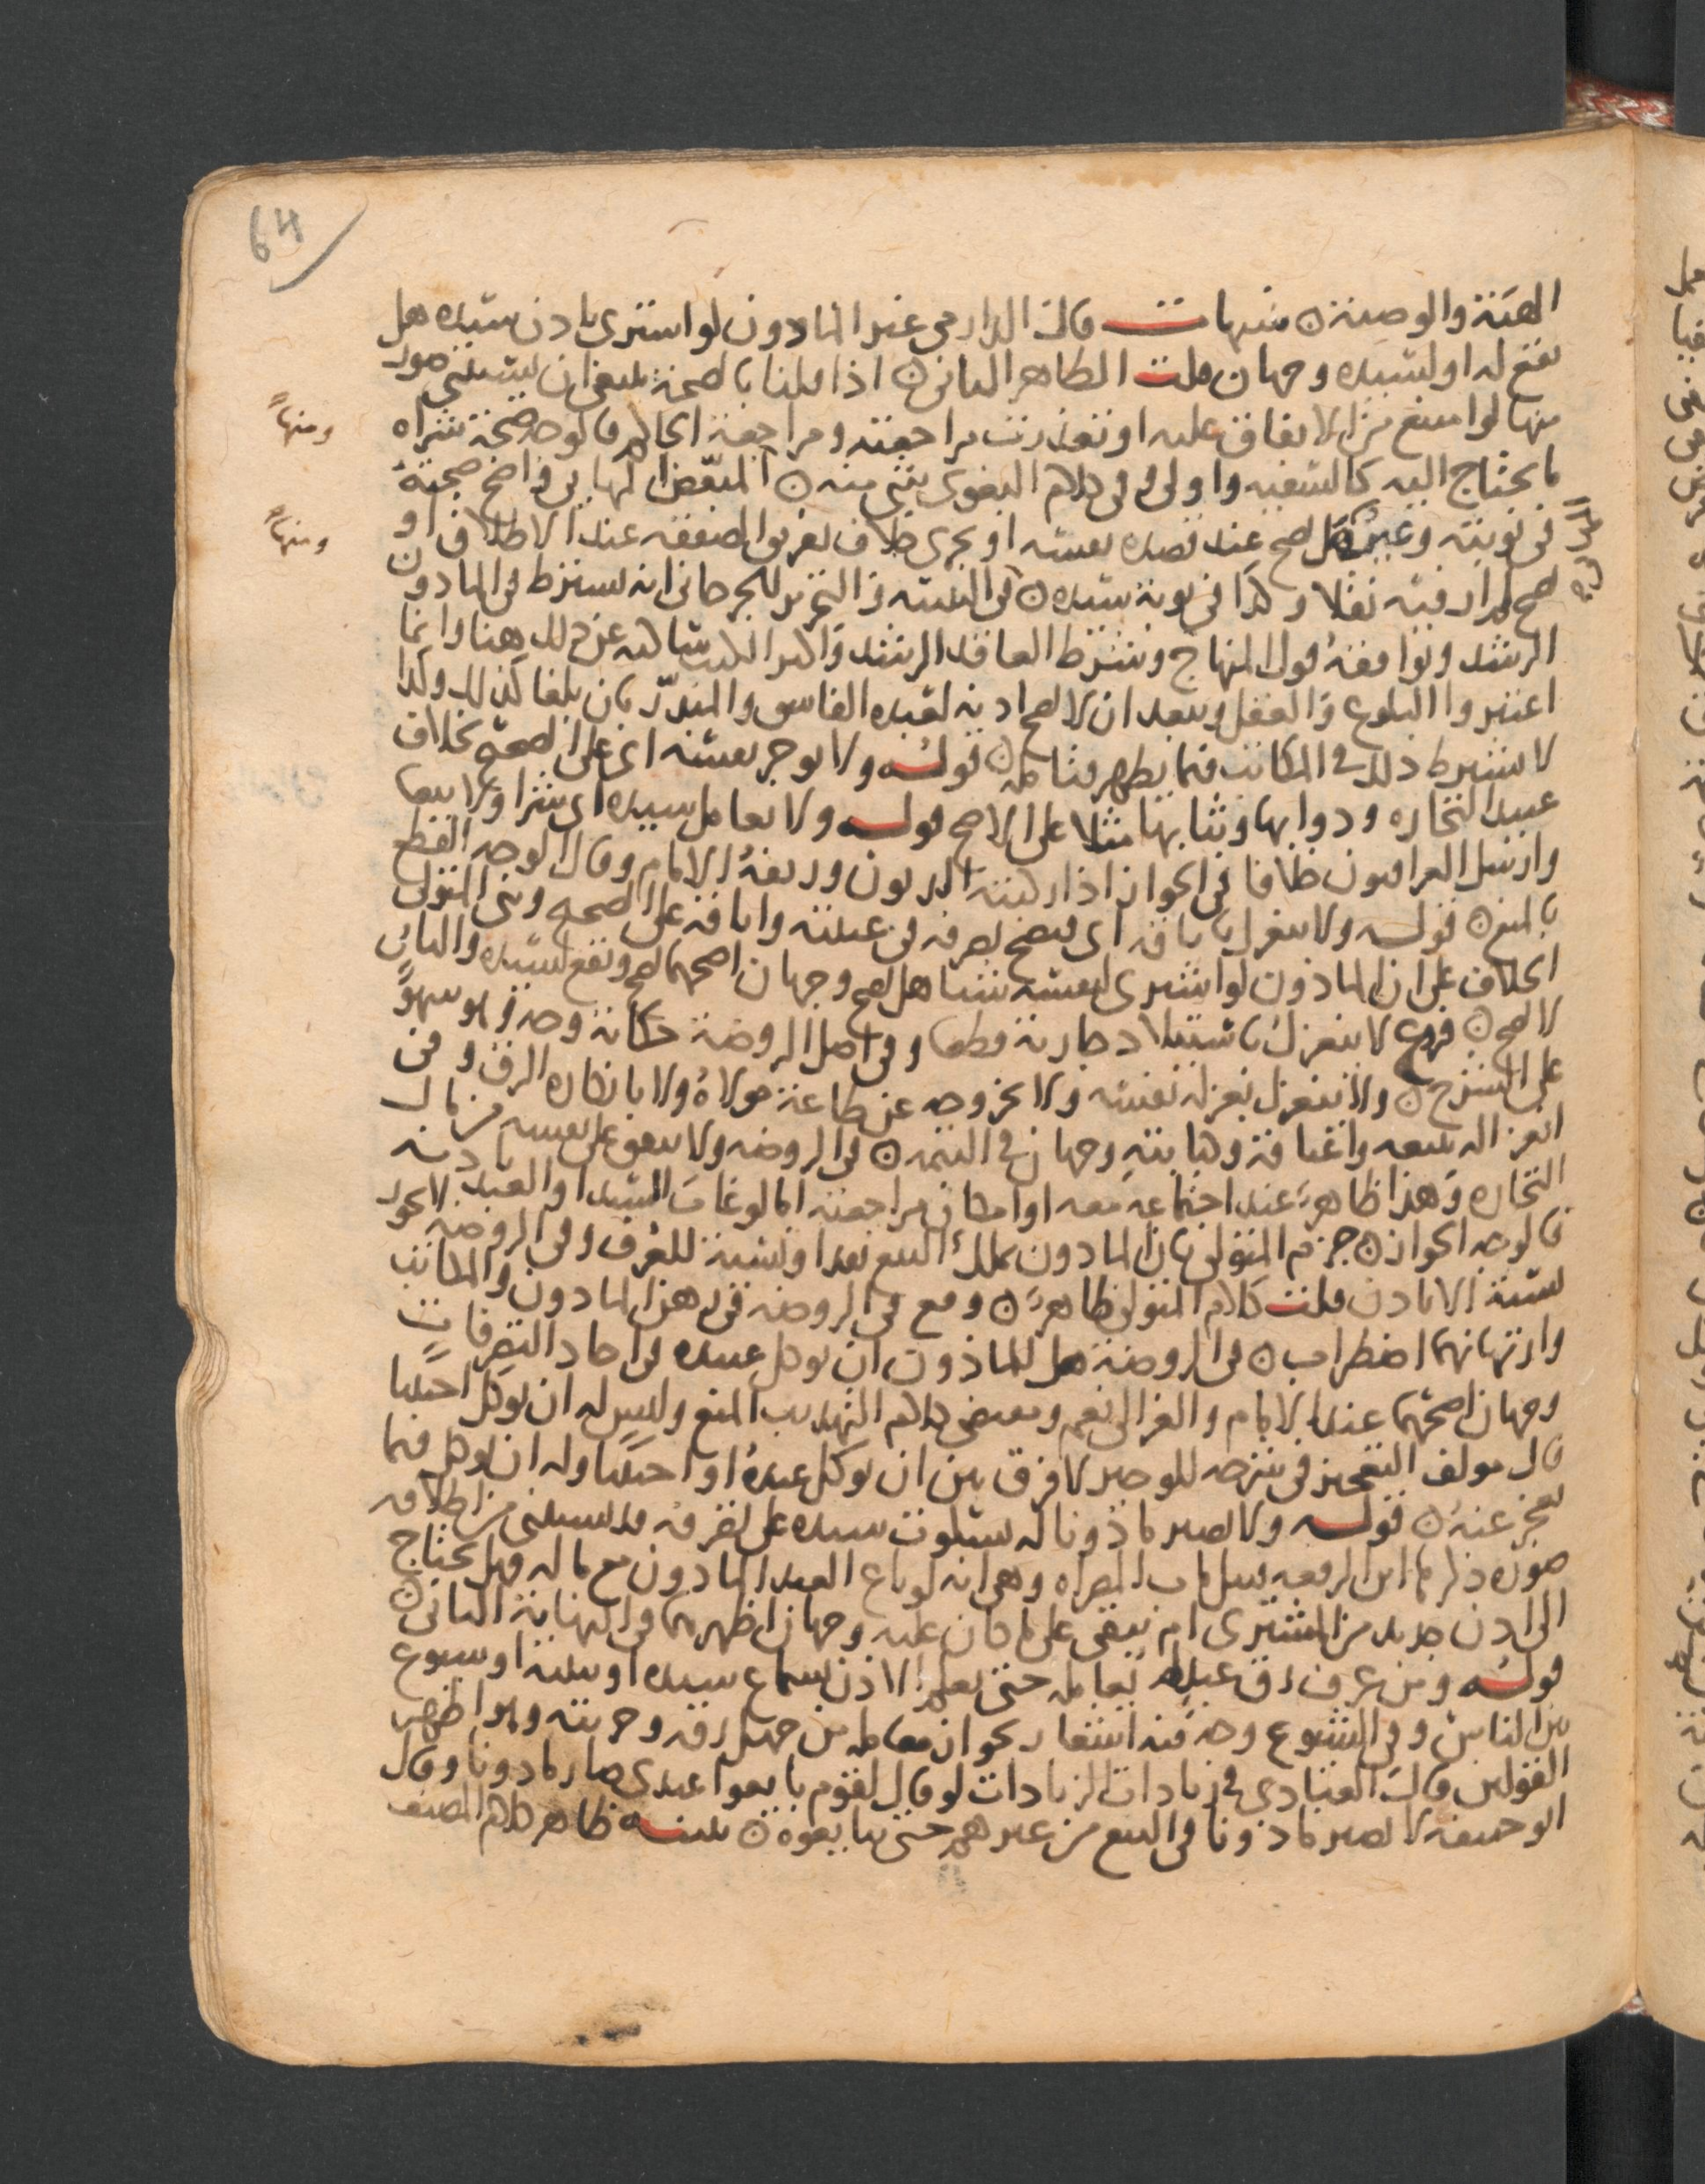 64
الهبة والوصية ۞ تنبيهات قال الدارمي غير الماذون لو اشترى باذن سيده هل
يقع له او لسيده وجهان قلت الظاهر الثاني ۞ اذا قلنا بالصحة فينبغي ان يستثنى صور
منها لو امتنع من الانفاق عليه او تعذرت مراجعته ومراجعة الحاكم فالوجه صحة شراه
ومنها
ما يحتاج اليه كالسفيه واولى وفي كلام البغوي شي منه ۞ المبعض المهايى واضح صحته
في نوبته وغير صح عند قصده نفسه او يجري خلاف تفريق الصفقة عند الاطلاق او
ومنها
صح لم ار فيه نقلا وكذا في نوبة سيده ۞ في التنبيه و التحرير للجرجاني انه يشترط في الماذون
الرشد ويوافقه قول المنهاج وشرط العاقد الرشد واكثر الكتب ساكتة عن ذلك هنا وانما
اعتبروا البلوغ والعقل ويبعد ان لا يصح اذنه لعبده الفاسق والمبذر بان بلغا كذلك وكذا
لا يشترط ذلك في المكاتب فيما يظهر فتامله ۞ قوله ولا يوجر نفسه اي على الصحيح بخلاف
عبيد التجارة ودوابها وثيابها مثلا على الاصح قوله ولا يعامل سيده اي شرا ولا بيعا
وارسل العراقيون خلافا في الجواز اذا ركبته الديون وزيفه الامام وقال الوجه القطع
بالمنع ۞ قوله ولا ينعزل باباقه اي فيصح تصرفه في غيبته واباقه على الصحيح وبنى المتولي
الخلاف على ان الماذون لو اشترى لنفسه شيا هل يصح وجهان اصحهما يصح ويقع لسيده والثاني
لا يصح ۞ فرع لا ينعزل باستيلاد جاريته قطعا وفي اصل الروضة حكاية وجه وهو سهو
على الشرح ۞ ولا ينعزل بعزله نفسه ولا بخروجه عن طاعة مولاه ولا بانكاره الرق وفي
انعزاله ببيعه واعتاقه وكتابته وجهان في التتمة ۞ في الروضة ولا ينفق على نفسه من مال
التجارة وهذا ظاهر عند اجتماعه معه او امكان مراجعته اما لو غاب السيد او العبد باذنه
فالوجه الجواز ۞ جزم المتولي بان الماذون يملك البيع نقدا ونسية للعرف وفي الروضة لا يجوز
نسية الا باذن قلت كلام المتولي ظاهر ۞ وقع في الروضة في رهن الماذون والمكاتب
وارتهانهما اضطراب ۞ في الروضة هل للماذون ان يوكل عبيده في احاد التصرفات
وجهان اصحهما عند الامام والغزالي نعم ومقتضى كلام التهذيب المنع وليس له ان يوكل اجنبيا
قال مولف التعجيز في شرحه للوجيز لا فرق بين ان يوكل عبده او اجنبيا وله ان يوكل فيما
يعجز عنه ۞ قوله ولا يصير ماذونا له بسكوت سيده على تصرفه قد يستثنى من اطلاقه
صورة ذكرها ابن الرفعة قبيل باب المصراه وهي انه لو باع العبد الماذون مع ماله فهل يحتاج
الى اذن جديد من المشتري ام يبقى على ما كان عليه وجهان اظهرهما في النهاية الثاني ۞
قوله ومن عرف رق عبد لم يعامله حتى يعلم الاذن بسماع سيده او بينة او شيوع
بين الناس وفي الشيوع وجه فيه اشعار بجواز معاملة من جهل رقه وحريته وهو اظهر
القولين قال العبادي في زيادات الزيادات لو قال لقوم بايعوا عبدي صار ماذونا وقال
ابو حنيفة لا يصير ماذونا في البيع من غيرهم حتى يبايعوه ۞ تنبيه ظاهر كلام المصنف